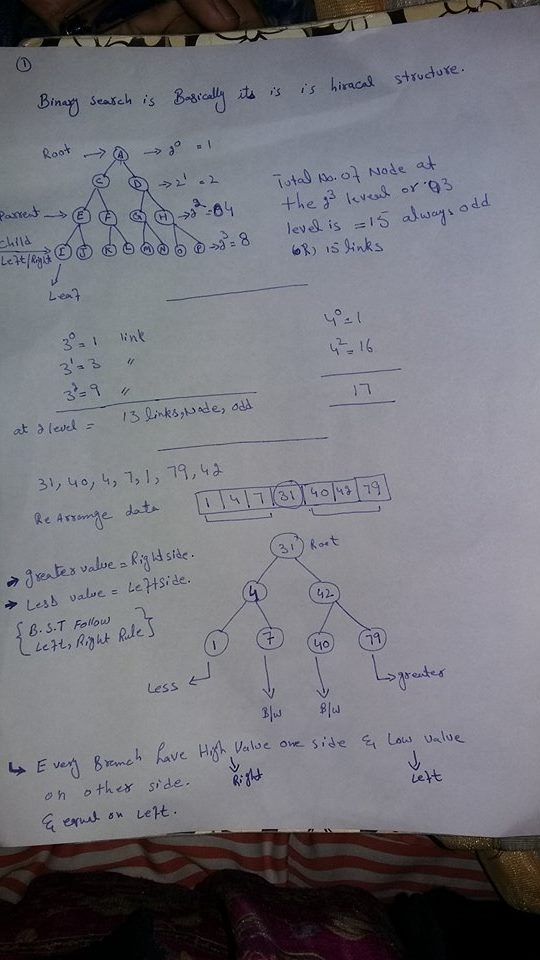 1
Binary search is Basically its is is hiracal structure.
Root → A → 2⁰ = 1
C D → 2¹ = 2
Parrent → E F G H → 2² = 04
Child Left/Right I J K L M N O P → 2³ = 8
Leaf
Total No. of Node at
the 2³ leveal or 93
level is = 15 always odd
OR, 15 links
3⁰ = 1 link
3¹ = 3 "
3² = 9 "
at 2 level = 13 links, Node, odd
4⁰ = 1
4² = 16
17
31, 40, 4, 7, 1, 79, 42
Re Arrange data 1 4 7 31 40 42 79
→ greater value = Right side.
→ Less value = Left Side.
{ B.S.T Follow
Left, Right Rule }
31 Root
4 42
1 7 40 79
Less B/W B/W greater
↳ Every Branch have High Value one side & Low value
on other side. Right Left
& equal on Left.